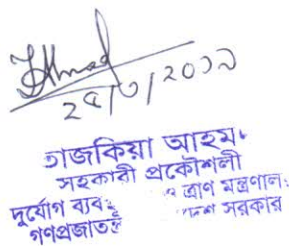 Ahmed
তাজকিয়া আহম
সহকারী প্রকৌশলী
দুর্যোগ ব্যব ত্রাণ মন্ত্রণাল
গণপ্রজাত সরকার